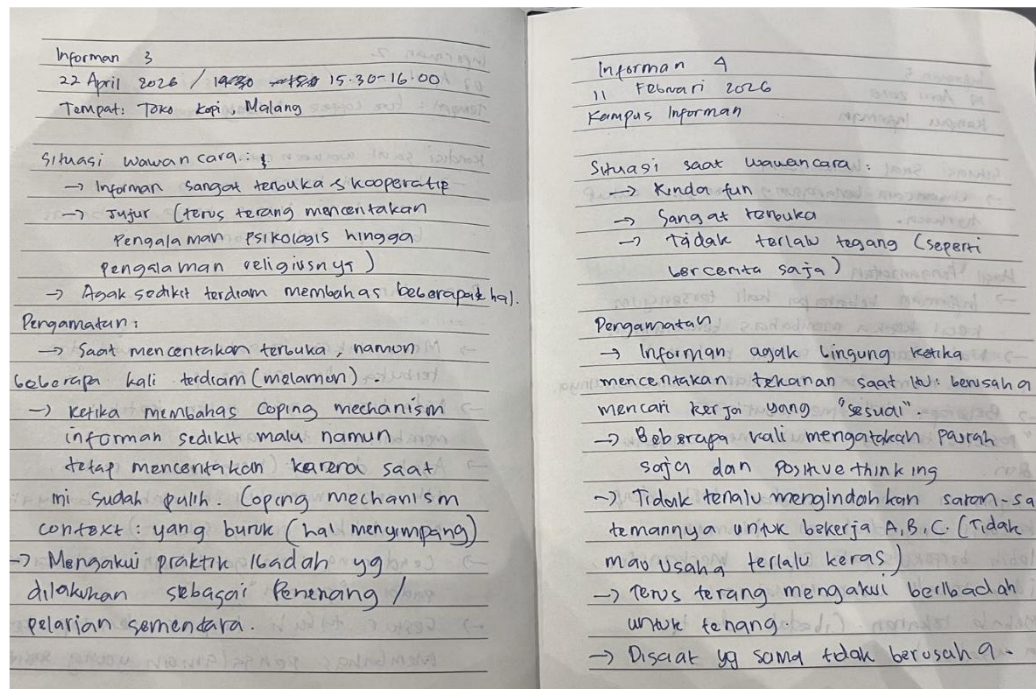 Informan 3
22 April 2026 / 15.30-16.00
Tempat: Toko Kopi, Malang
Situasi wawancara:
→ Informan sangat terbuka & kooperatif
→ Jujur (terus terang menceritakan
Pengalaman psikologis hingga
pengalaman religiusnya)
→ Agak sedikit terdiam membahas beberapa hal.
Pengamatan:
→ Saat menceritakan terbuka, namun
beberapa kali terdiam (melamun).
→ Ketika membahas Coping mechanism
informan sedikit malu namun
tetap menceritakan karena saat
ini sudah pulih. Coping mechanism
context: yang buruk (hal menyimpang)
→ Mengakui praktik ibadah yg
dilakukan sebagai Penenang /
pelarian sementara.
Informan 4
11 Februari 2026
Kampus Informan
Situasi saat wawancara:
→ Kinda fun
→ Sangat terbuka
→ Tidak terlalu tegang (seperti
bercerita saja)
Pengamatan
→ Informan agak bingung ketika
menceritakan tekanan saat itu: berusaha
mencari kerja yang "sesuai".
→ Beberapa kali mengatakan pasrah
saja dan positive thinking
→ Tidak terlalu mengindahkan saran-sa
temannya untuk bekerja A, B, C. (Tidak
mau usaha terlalu keras)
→ Terus terang mengakui beribadah
untuk tenang.
→ Disaat yg sama tidak berusaha.